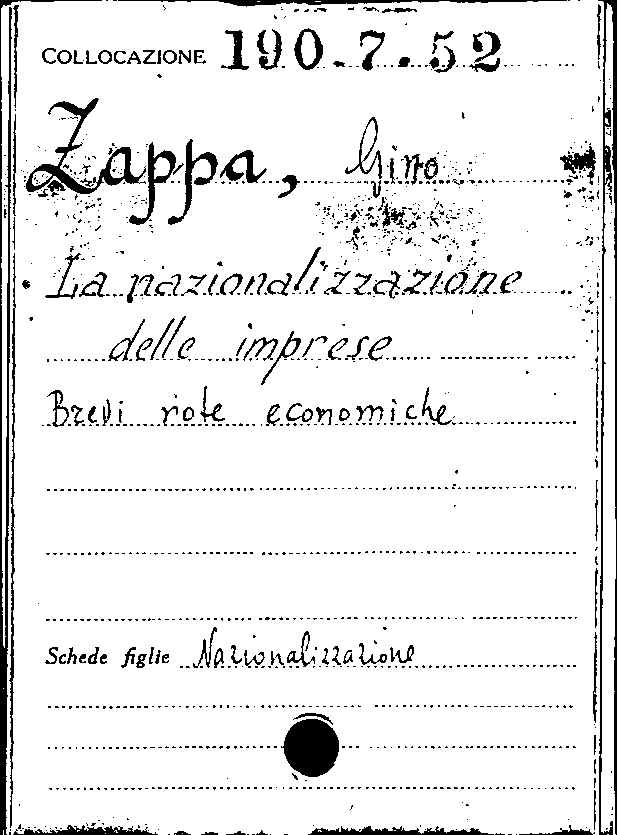 COLLOCAZIONE 190.7.52
Zappa, Gino
La nazionalizzazione
delle imprese
Brevi note economiche
Schede figlie Nazionalizzazione